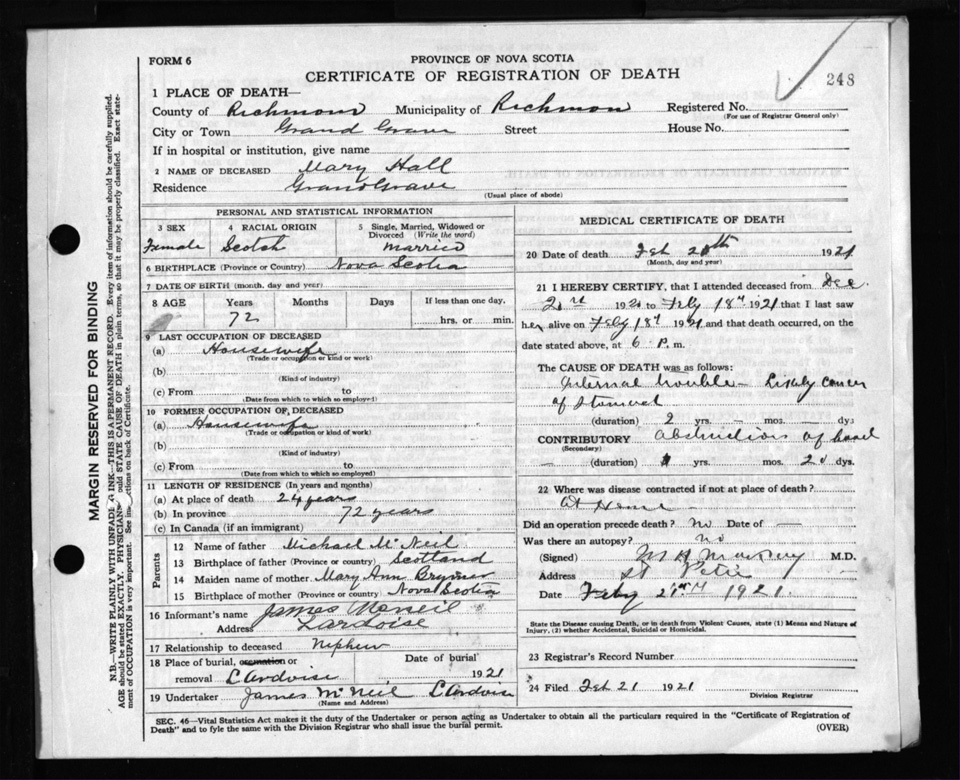 FORM 6
PROVINCE OF NOVA SCOTIA
CERTIFICATE OF REGISTRATION OF DEATH
248
1 PLACE OF DEATH—
County of Richmond Municipality of Richmon Registered No.
(For use of Registrar General only)
City or Town Grand Grave Street House No.
If in hospital or institution, give name
2 NAME OF DECEASED Mary Hall
Residence Grand Grave
(Usual place of abode)
MARGIN RESERVED FOR BINDING
N.B.—WRITE PLAINLY WITH UNFADING INK—THIS IS A PERMANENT RECORD. Every item of information should be carefully supplied.
AGE should be stated EXACTLY. PHYSICIANS should STATE CAUSE OF DEATH in plain terms, so that it may be properly classified. Exact state-
ment of OCCUPATION is very important. See instructions on back of Certificate.
PERSONAL AND STATISTICAL INFORMATION
3 SEX 4 RACIAL ORIGIN 5 Single, Married, Widowed or
Divorced (Write the word)
Female Scotch Married
6 BIRTHPLACE (Province or Country) Nova Scotia
7 DATE OF BIRTH (month, day and year)
8 AGE Years Months Days If less than one day,
72 hrs. or min.
9 LAST OCCUPATION OF DECEASED
(a) Housewife
(Trade or occupation or kind of work)
(b)
(Kind of industry)
(c) From to
(Date from which to which so employed)
10 FORMER OCCUPATION OF DECEASED
(a) Housewife
(Trade or occupation or kind of work)
(b)
(Kind of industry)
(c) From to
(Date from which to which so employed)
11 LENGTH OF RESIDENCE (In years and months)
(a) At place of death 24 years
(b) In province 72 years
(c) In Canada (if an immigrant)
Parents
12 Name of father Michael McNeil
13 Birthplace of father (Province or country) Scotland
14 Maiden name of mother Mary Ann Brymer
15 Birthplace of mother (Province or country) Nova Scotia
16 Informant's name James McNeil
Address Lardoise
17 Relationship to deceased Nephew
18 Place of burial, cremation or Date of burial
removal L'Ardoise 1921
19 Undertaker James McNeil L'Ardoise
(Name and Address)
MEDICAL CERTIFICATE OF DEATH
20 Date of death Feb 20th 1921
(Month, day and year)
21 I HEREBY CERTIFY, that I attended deceased from Dec
1920 to Feby 18th 1921 that I last saw
her alive on Feby 18th 1921 and that death occurred, on the
date stated above, at 6 P. m.
The CAUSE OF DEATH was as follows:
Internal trouble – Likely cancer
of stomach
(duration) 2 yrs. mos. – dys.
CONTRIBUTORY Obstruction of bowel
(Secondary)
— (duration) yrs. mos. 20 dys.
22 Where was disease contracted if not at place of death?
At Home
Did an operation precede death? No Date of —
Was there an autopsy? No
(Signed) M.D.
Address St Peters
Date Feby 1921
State the Disease causing Death, or in death from Violent Causes, state (1) Means and Nature of
Injury, (2) whether Accidental, Suicidal or Homicidal.
23 Registrar's Record Number
24 Filed Feb 21 1921
Division Registrar
SEC. 46—Vital Statistics Act makes it the duty of the Undertaker or person acting as Undertaker to obtain all the particulars required in the "Certificate of Registration of
Death" and to fyle the same with the Division Registrar who shall issue the burial permit. (OVER)